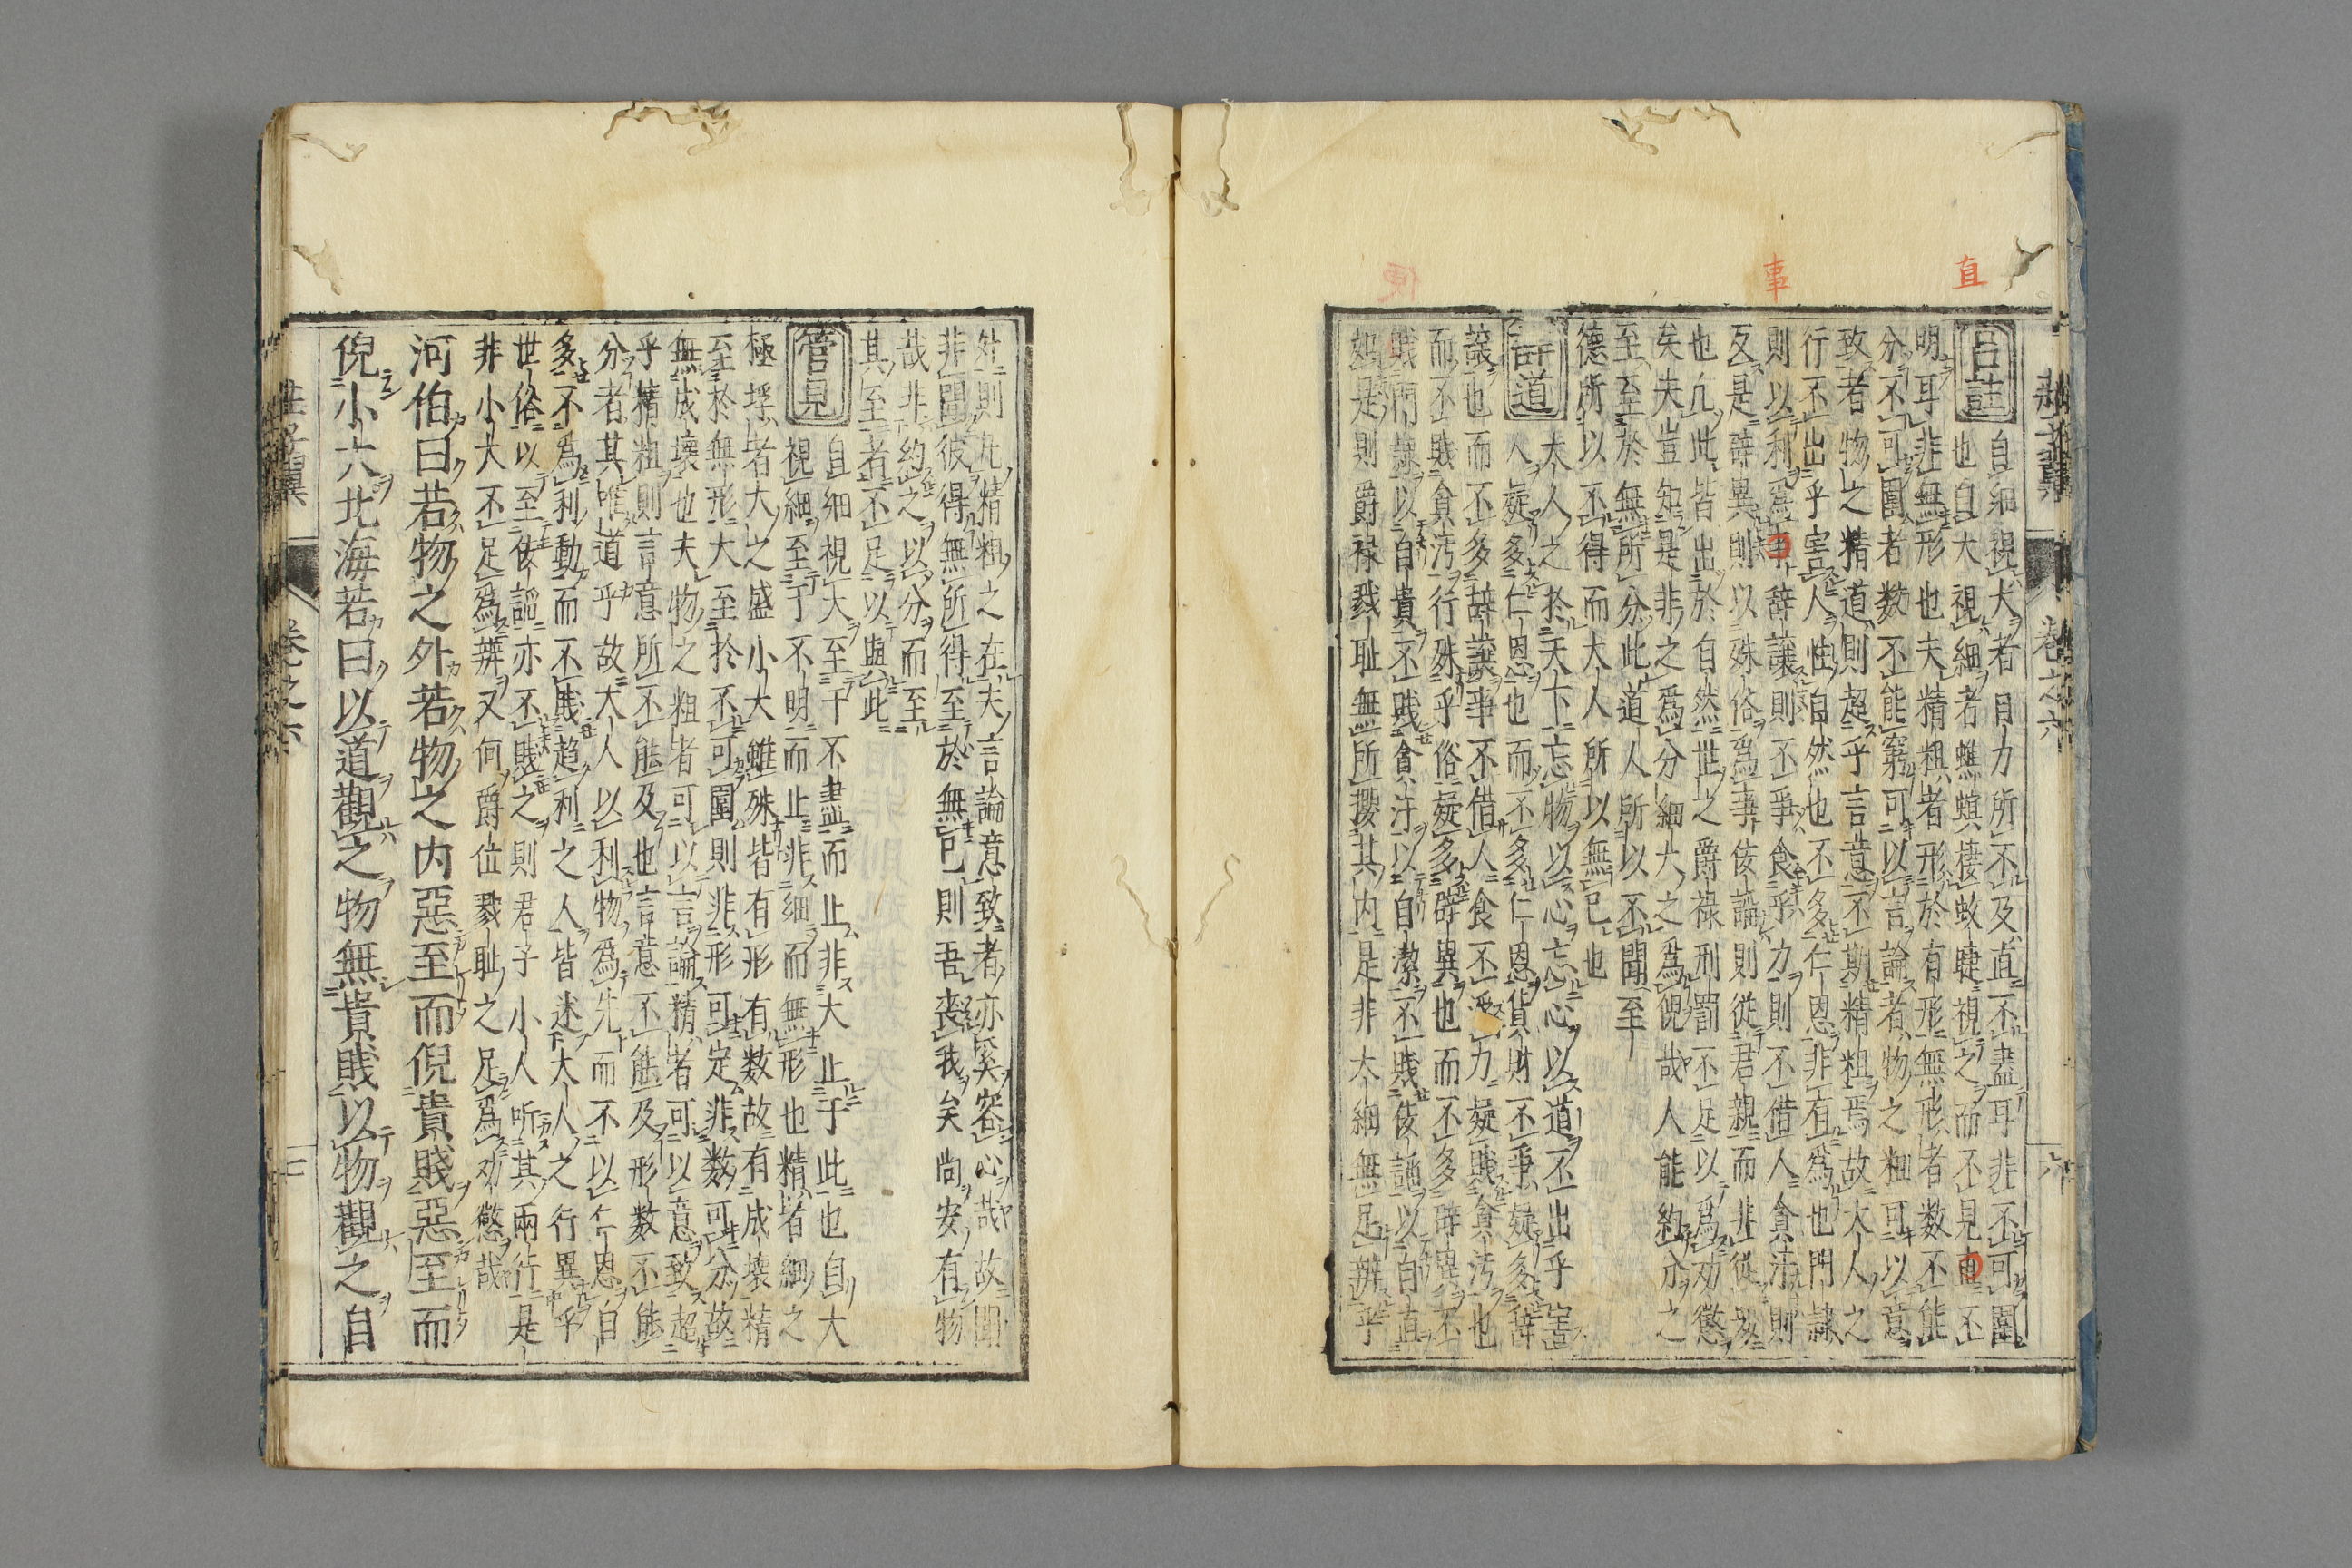 直
事
莊子翼 卷之六 六
呂註 自細視大者目力所不及直不盡耳非不可圍
也自大視細者蟭螟棲蚊睫視之而不見直不
明耳非無形也夫精粗者形於有形無形者数不能
分不可圍者数不能窮可以言論者物之粗可以意
致者物之精道則超乎言意不期精粗焉故大人之
行不出乎害人性自然也不多仁恩非有為也門隷
則以利為事辭讓則不爭食乎力則不借人貪汚則
反是辟異則以殊俗為事佞謟則從君親而非從叛
也凢此皆出於自然世之爵禄刑罰不足以為劝懲
矣夫豈知是非之為分細大之為倪哉人能約分之
至至於無所分此道人所以不聞至
德所以不得而大人所以無已也
詳道 大人之於天下忘物以心忘心以道不出乎害
人疑多仁恩也而不多仁恩貨財不爭疑多辭
讓也而不多辭讓事不借人食不多力疑賎貪汚也
而不賎貪汚行殊乎俗疑多辟異也而不多辟異不
賎門隷以自貴不賎貪汙以自潔不賎佞謟以自直
如是則爵禄戮耻無所攖其内是非大細無足辨乎
外則凢精粗之在夫言論意致者亦奚容心哉故聞
非聞彼得無所得至於無已則吾喪我矣尚安有物
哉非約之以分而至
其至者不足以與此
管見 自細視大至于不盡而止非大止于此也自大
視細至于不明而止非細而無形也精者細之
極垺者大之盛小大雖殊皆有形有数故有成壊精
至於無形大至於不可圍則非形可定非数可分故
無成壊也夫物之粗者可以言論精者可以意致超
乎精粗則言意所不能及也言意不能及形数不能
分者其惟道乎故大人以利物為先而不以仁恩自
多不為利動而不賎趋利之人人皆迷大人之行異乎
世俗以至佞謟亦不賎之則君子小人听其兩行是
非小大不足為辨又何爵位戮耻之足為劝懲哉
河伯曰若物之外若物之内惡至而倪貴賤惡至而
倪小大北海若曰以道觀之物無貴賎以物觀之自
莊子翼 卷之六